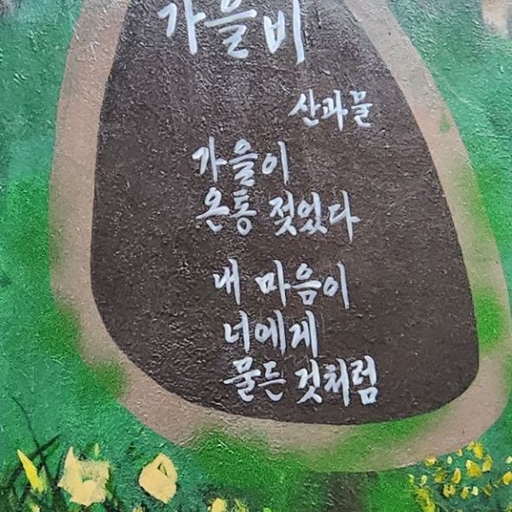 가을비
산과물
가을이
온통 젖었다
내 마음이
너에게
물든 것처럼